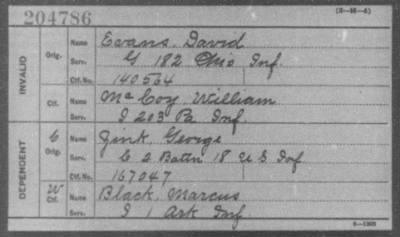 204786
(3-86-A)
INVALID
Orig.
Name Evans, David
Serv. G 182 Ohio Inf.
Ctf.No. 140564
Ctf.
Name McCoy, William
Serv. I 203 Pa Inf.
DEPENDENT
C
Orig.
Name Zink, George
Serv. C 2 Battn 18 U S Inf
Ctf.No. 167047
W
Ctf.
Name Black, Marcus
Serv. I 1 Ark Inf.